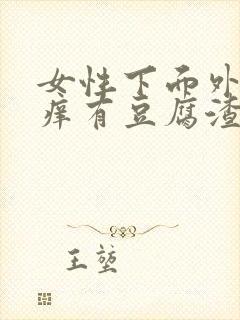 女性下面外
痒有豆腐渣
王堃